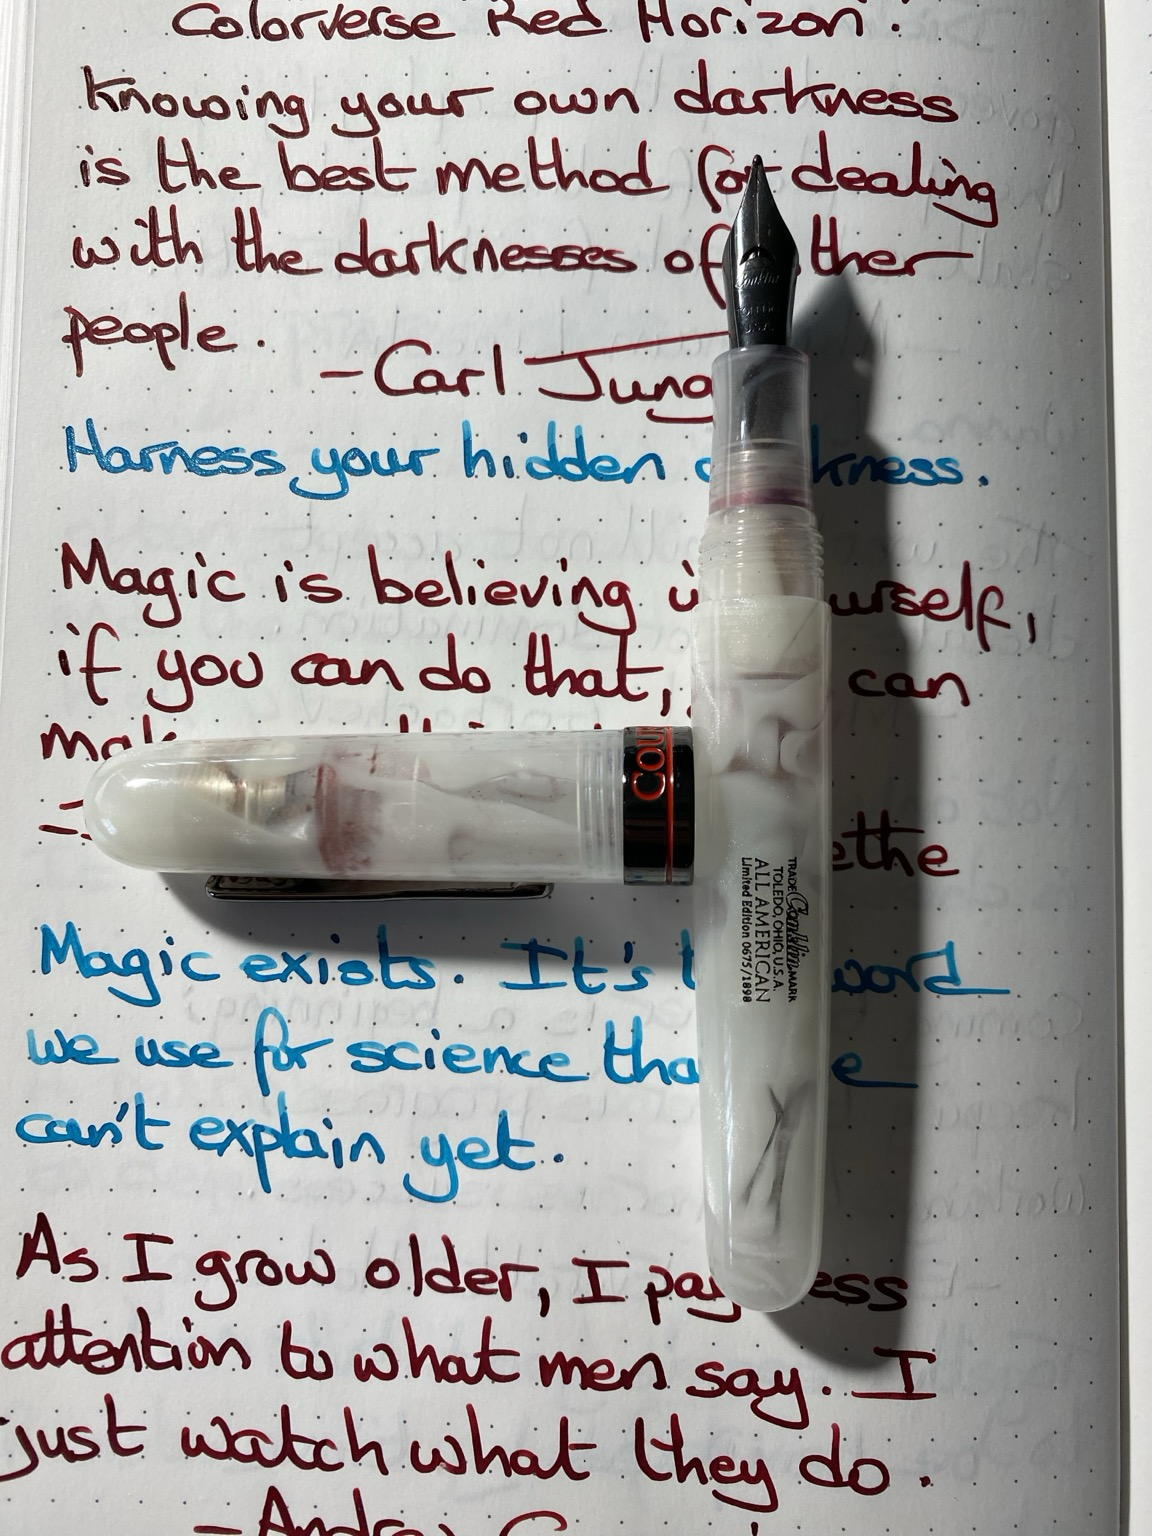 Colorverse Red Horizon.
Knowing your own darkness
is the best method for dealing
with the darknesses of other
people.
-Carl Jung
Harness your hidden darkness.
Magic is believing in yourself,
if you can do that, can
-
Magic exists. It's word
we use for science
can't explain yet.
As I grow older, I pay less
attention to what men say. I
just watch what they do.
-Andrew
Conklin
TOLEDO
U.S.A.
TRADE Conklin MARK
TOLEDO, OHIO, U.S.A.
ALL AMERICAN
Limited Edition 0675/1898